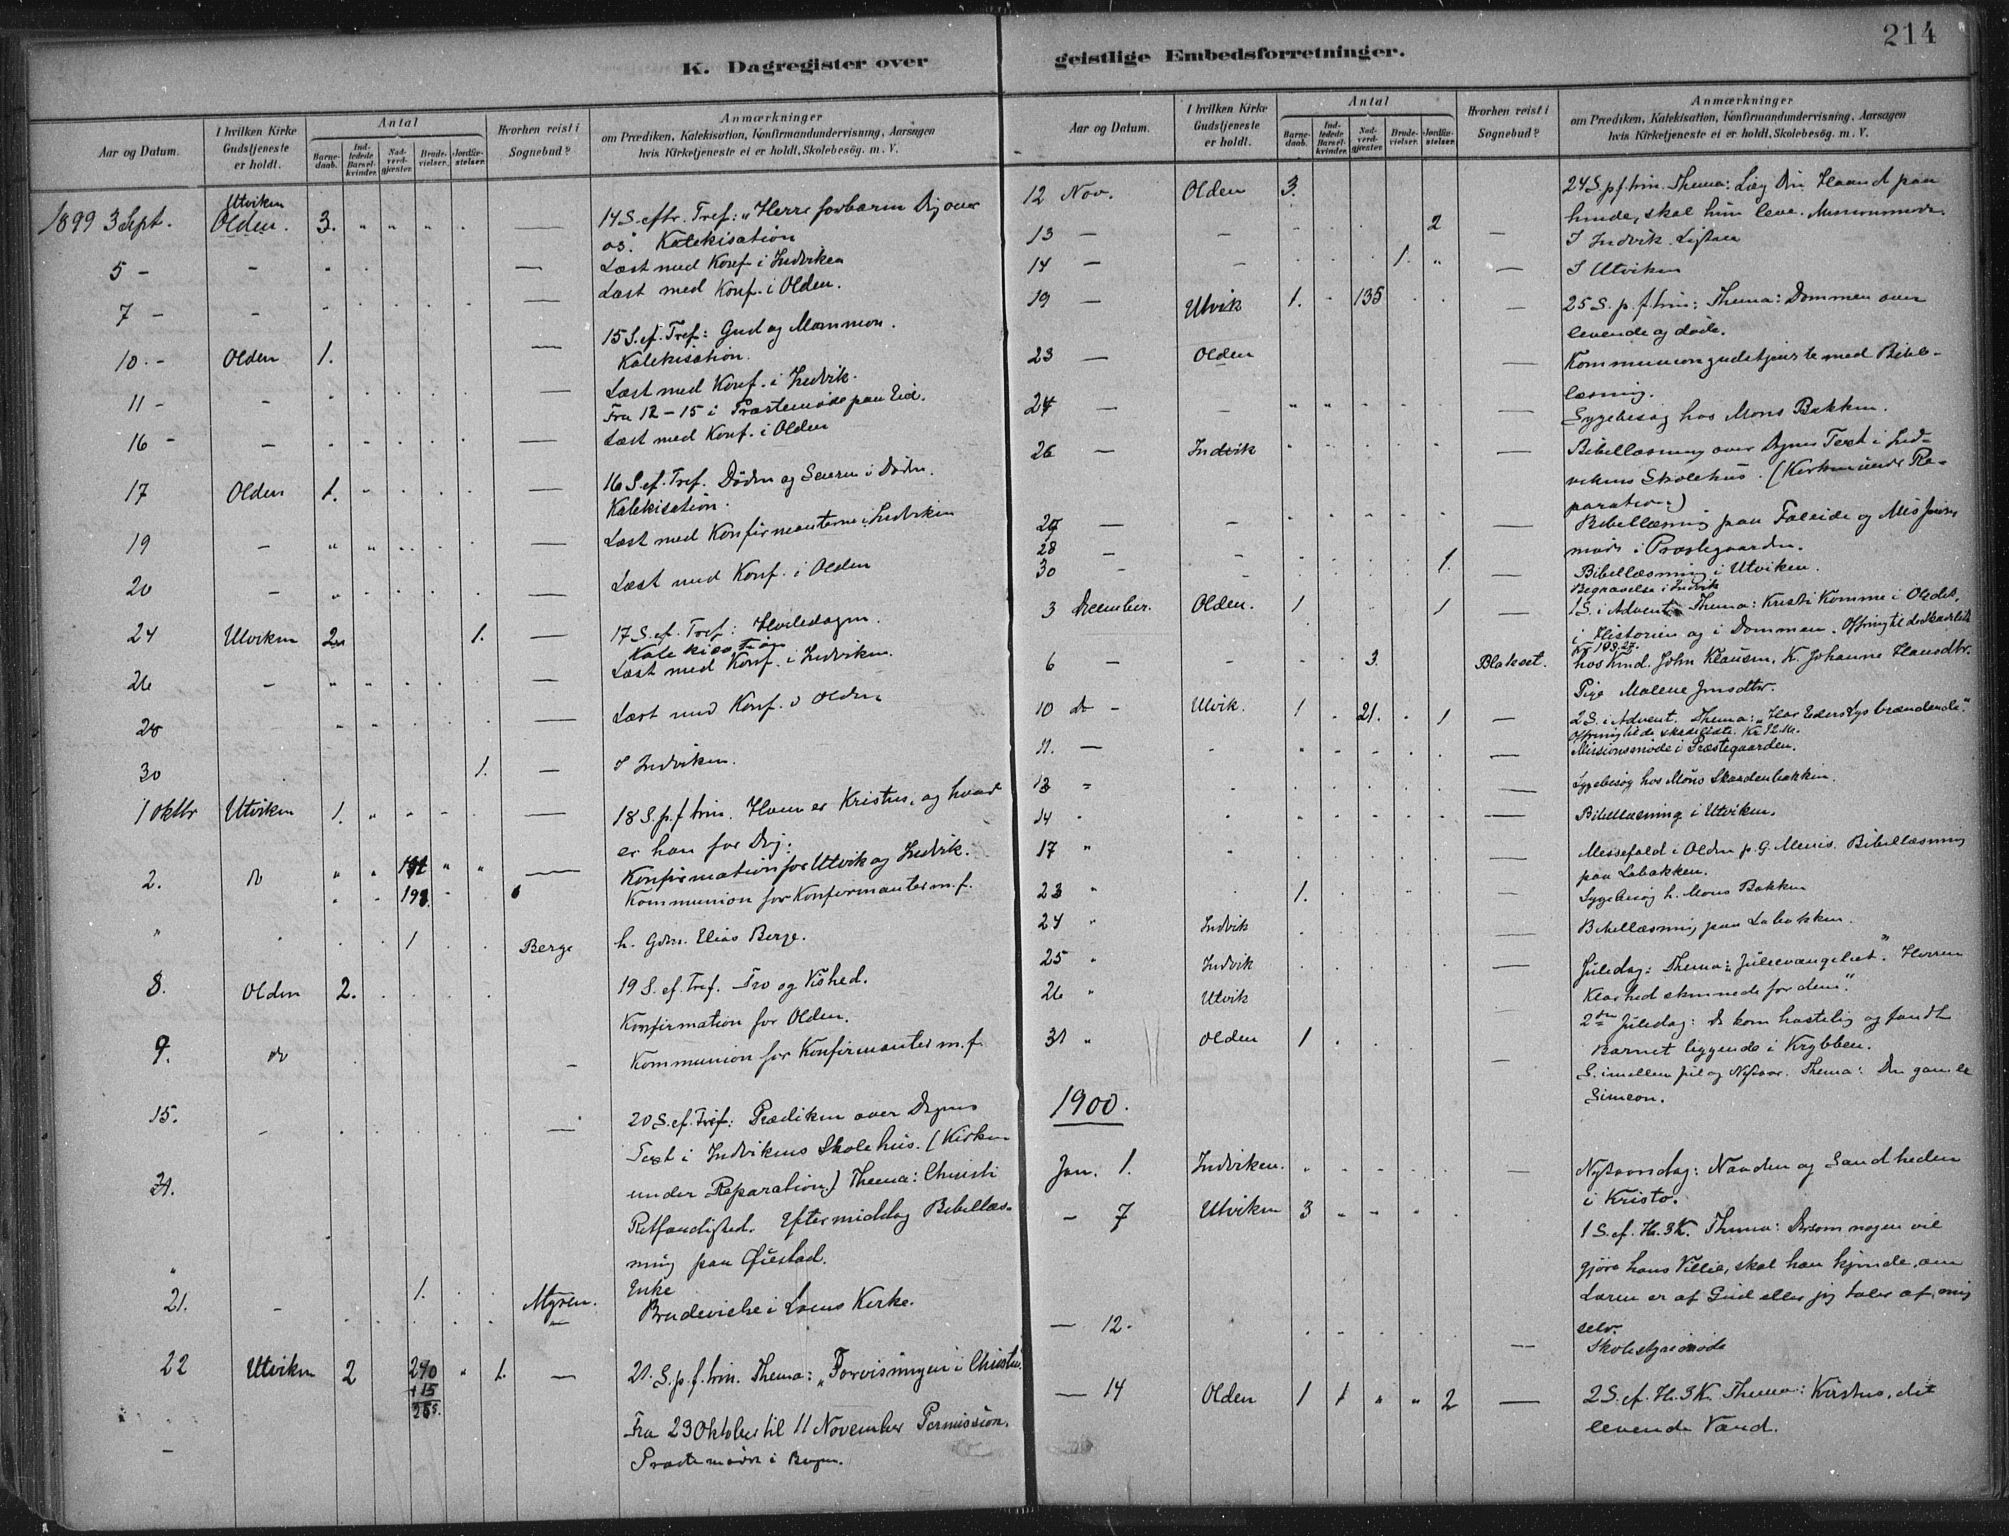 214
K. Dagregister over geistlige Embedsforretninger.
Aar og Datum.
I hvilken Kirke Gudstjeneste er holdt.
Antal
Barnedaab.
Indledede Barselkvinder.
Nadverdgjæster.
Brudevielser.
Jordfæstelser.
Hvorhen reist i Sognebud?
Anmærkninger
om Prædiken, Katekisation, Konfirmandundervisning, Aarsagen
hvis Kirketjeneste ei er holdt, Skolebesøg. m. V.
1899 3 Sept. Utviken Olden. 3. 14 S. eftr. Tref: "Herre forbarm Dig over
os". Katekisation
5 - Læst med Konf. i Indviken
7 - Læst med Konf. i Olden.
10. - Olden 1. 15 S. ef. Tref: Gud og Mammon.
Katekisation.
11 - Læst med Konf. i Indvik.
Fra 12-15 i Præstemøde paa Eid.
16 - Læst med Konf. i Olden
17 Olden 1. 16 S. ef. Tref. Døden og i Døden.
Katekisation.
19 Læst med Konfirmanterne i Indviken
20 Læst med Konf. i Olden
24 Utviken 2 1. 17 S. ef. Tref: Hviledagen.
Katekisation
26 Læst med Konf. i Indviken.
Læst med Konf. i Olden
30 1. I Indviken.
1 Oktbr Utviken 1. 18 S. p. f. trin. Hvem er Kristus, og hvad
er han for Dig.
2. do Konfirmation for Utvik og Indvik.
198. Kommunion for Konfirmanter m. f.
" 1 Berge h. Gdm. Elias Berge.
8. Olden 2. 19 S. ef. Tref. Tro og Vished.
Konfirmation for Olden.
9. do Kommunion for Konfirmanter m. f.
15. 20 S. ef. Tref: Prædiken over Dagens
Text i Indvikens Skolehus. (Kirken
under Reparation) Thema: Christi
Retfærdighed. Eftermiddag Bibellæs-
ning paa Øiestad.
21. 1. Myren. Enke
Brudevielse i Loens Kirke.
22 Utviken 2 240 +15 255. 1. 21. S. p. f. trin. Thema: "Forvisningen i Christus"
Fra 23 Oktober til 11 November Permission.
Præstemøde i Bergen.
Aar og Datum.
I hvilken Kirke Gudstjeneste er holdt.
Antal
Barnedaab.
Indledede Barselkvinder.
Nadverdgjæster.
Brudevielser.
Jordfæstelser.
Hvorhen reist i Sognebud?
Anmærkninger
om Prædiken, Katekisation, Konfirmandundervisning, Aarsagen
hvis Kirketjeneste ei er holdt, Skolebesøg. m. V.
12 Nov. Olden 3. 24 S. p. f. trin. Thema: Læg Din Haand paa
hende, skal hun leve.
13 - 2 I Indvik
14 - 1. I Utviken
19 - Utvik 1. 135 25 S. p. f. trin: Thema: Dommen over
levende og døde.
23 - Olden Kommuniongudstjeneste med Bibel-
læsning.
24 - Sygebesøg hos Mons Bakken.
26 - Indvik Bibellæsning over Dagens Text i Ind-
vikens Skolehus. (Kirken under Re-
paration)
Bibellæsning paa Faleide og Missions
møde i Præstegaarden.
28 - 1. Bibellæsning i Utviken.
30 - Begravelse i Indvik
3 December. Olden. 1 1 1 S. i Advent. Thema: Kristi Komme i Ordet,
i Historien og i Dommen.
6 - 3. Blakset. hos Kmd. John Klausen, K. Johanne Hansdtr.
Pige Malene Jensdtr.
10 do - Utvik. 1 21. 1 2 S. i Advent. Thema: "Har Eders Lys brændende".
11. - Missionsmøde i Præstegaarden.
13 " Sygebesøg hos Mons Skardenbakken.
14 " Bibellæsning i Utviken.
17 " Messefald i Olden p. G. Bibellæsning
paa Løbakken.
23 " 1. Sygebesøg h. Mons Bakken
24 " Indvik Bibellæsning paa Løbakken.
25 " Indvik Juledag: Thema: "Juleevangeliet". Herren
Klarhed skinnede for dem".
26 " Utvik 2den Juledag: De kom hastelig og fandt
Barnet liggende i Krybben.
31 " Olden 1 S. imellem Jul og Nytaar. Thema: Den gamle
Simeon.
1900.
Jan. 1. Indviken. Nytaarsdag: Naaden og Sandheden
i Kristo.
- 7 Utviken 3 1 S. ef. H. 3 K. Thema: Dersom nogen vil
gjøre hans Villie, skal han kjende, om
Læren er af Gud eller jeg taler af mig
selv.
- 12. Skolestyremøde
- 14 Olden 1 1 " " 2 2 S. ef. H. 3 K. Thema: Kristus, det
levende Vand.